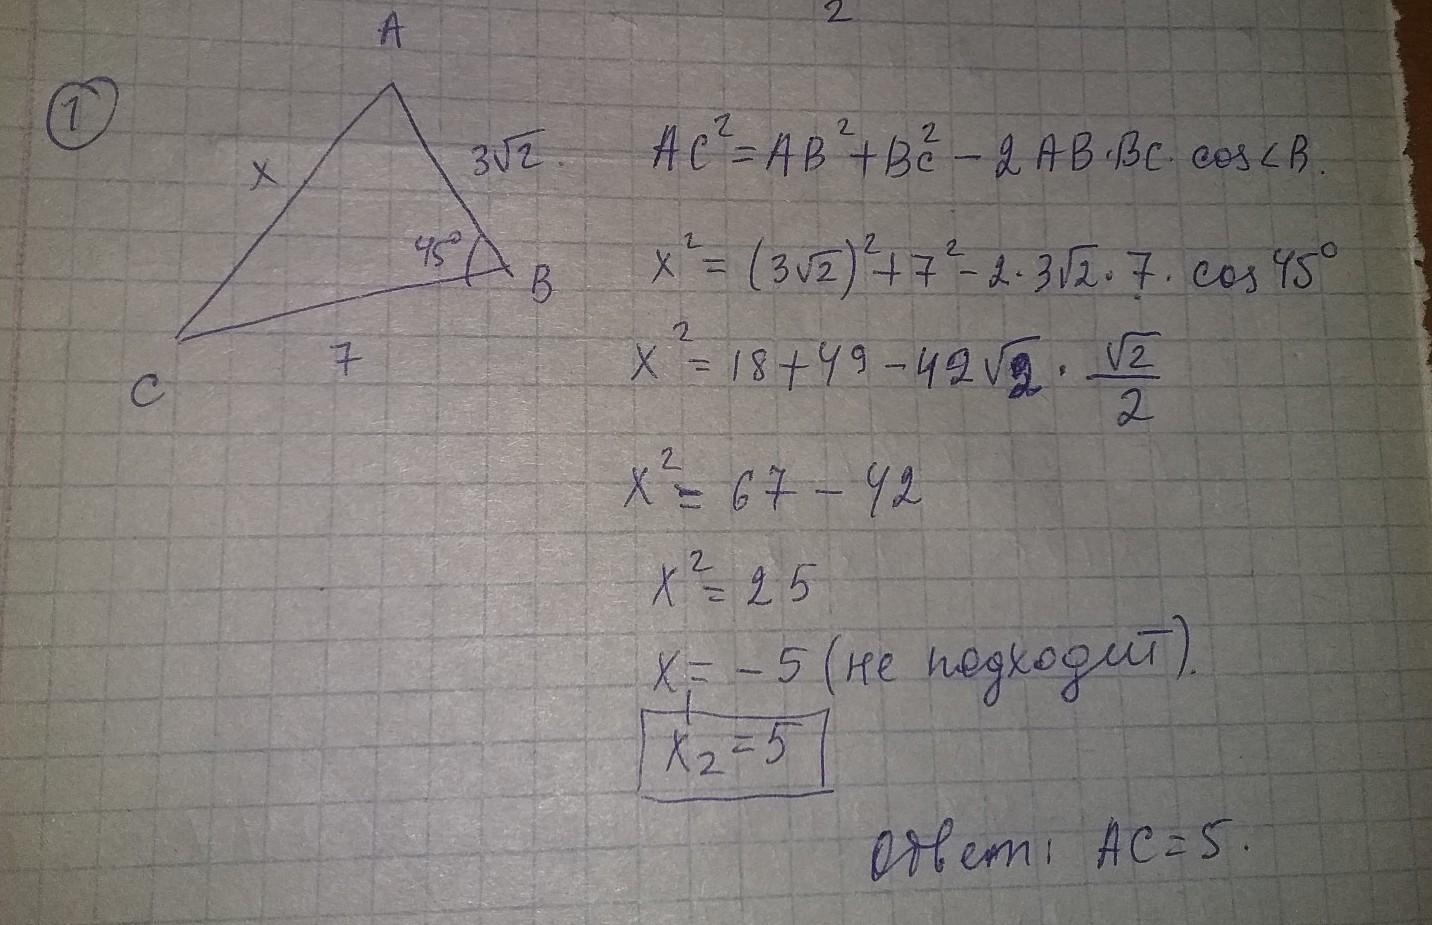 2
①
A
x
3√2.
45°
B
7
C
AC² = AB² + BC² - 2 AB·BC· cos∠B.
x² = (3√2)² + 7² - 2·3√2·7· cos 45°
x² = 18 + 49 - 42√2 · √2/2
x² = 67 - 42
x² = 25
x₁ = -5 (не подходит).
x₂ = 5
Ответ: AC = 5.